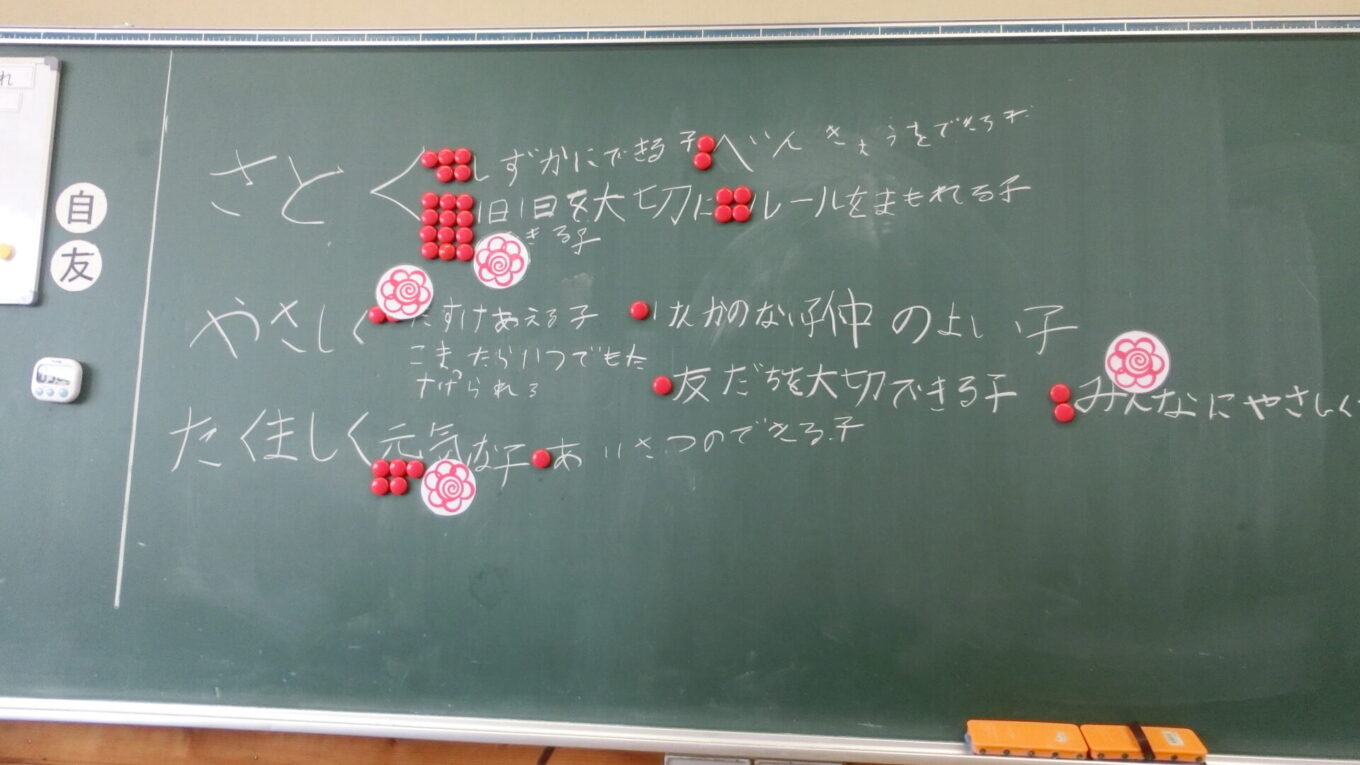 れ
自
友
さとく しずかにできる子 べんきょうをできる子
1日1日を大切に ルールをまもれる子
きる子
やさしく たすけあえる子 けんかのない子 仲のよい子
こまたらいつでもた
すけられる
友だちを大切できる子 みんなにやさしく
たくましく 元気な子 あいさつのできる子